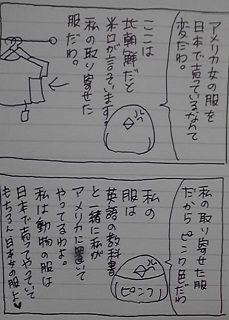 アメリカ女の服を
日本で売っているなんて
変だわ。
ここは
北朝鮮だと
米口が言そいます。
私の取り寄せた
服だわ。
私の取り寄せた服
だからピンク色だわ
ピンク
私の
服は
英語の教科書
と一緒に私が
アメリカに置いて
やってるわよ。
私は動物の服は
日本で売ってやっていて
もちろん日本女の服よ♥